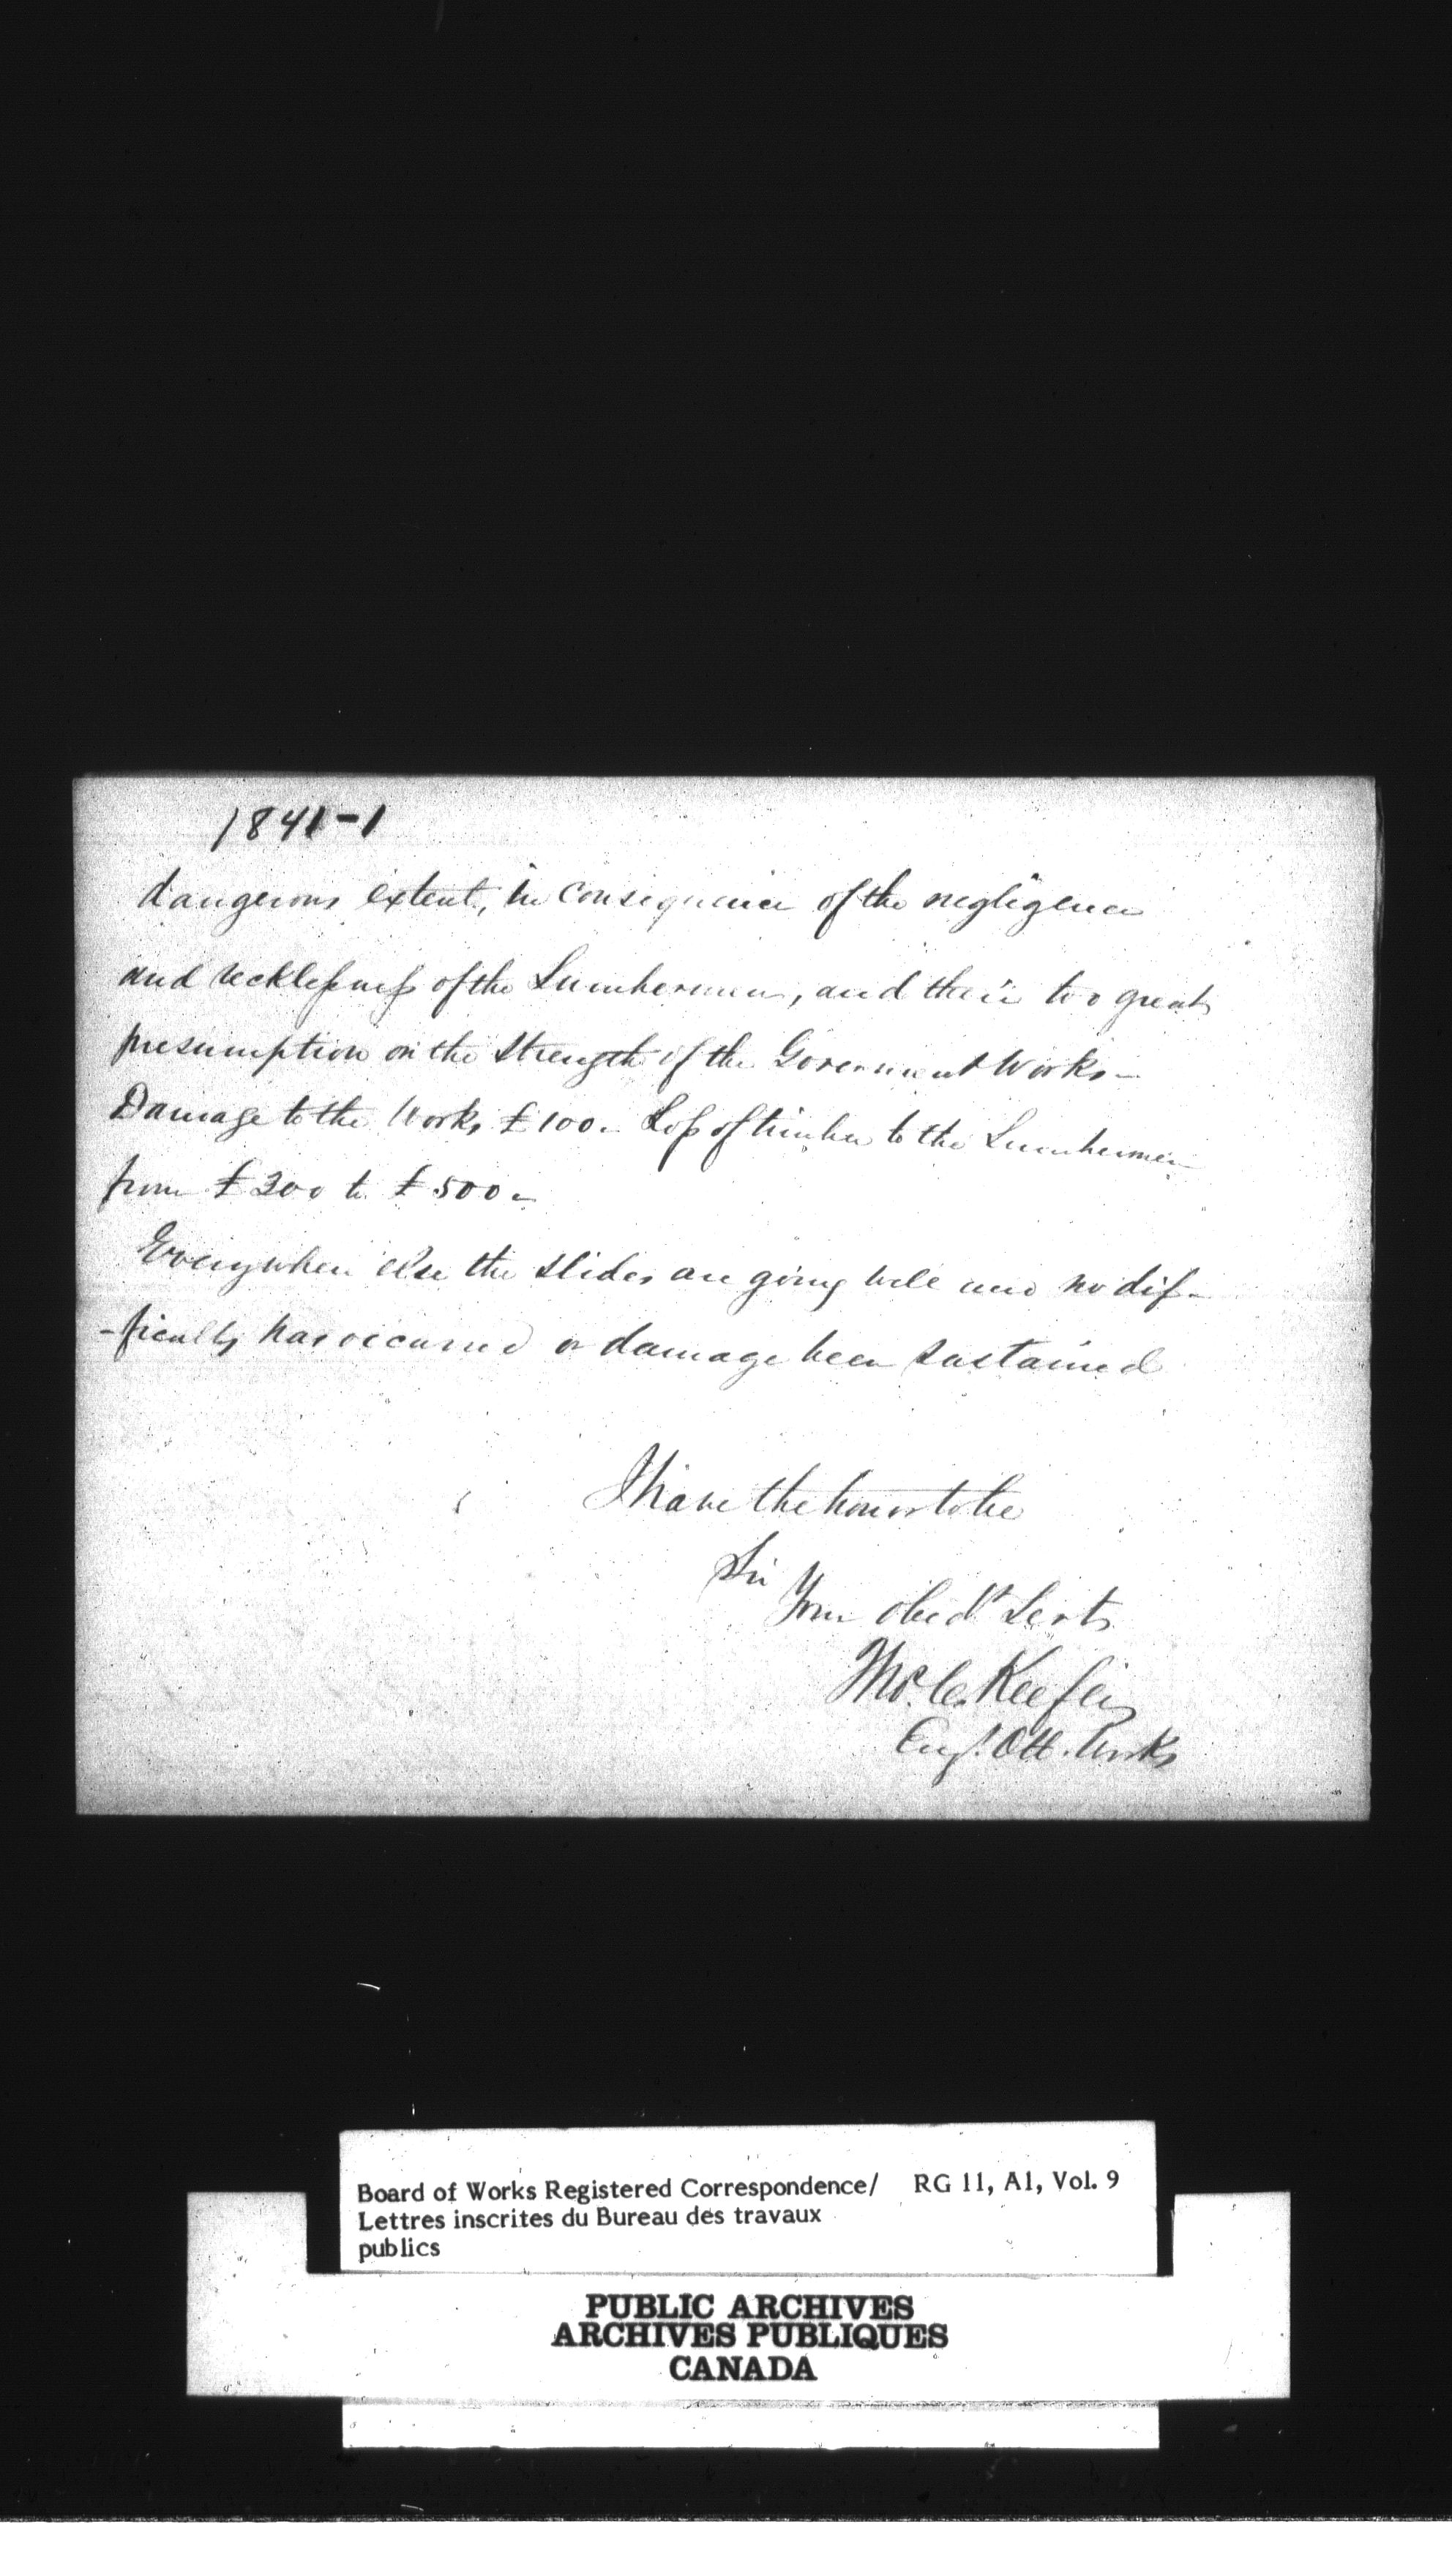 1841-1
dangerous extent, in consequence of the negligence
and recklessness of the Lumbermen, and their too great
presumption on the strength of the Government Works -
Damage to the Works £100 - Loss of timber to the Lumbermen
from £300 to £500 -
Everywhere else the slides are going well and no dif-
-ficulty has occurred or damage been sustained
I have the honor to be
Sir
Your obedt. Servt.
Thos. C. Keefer
Engr. Ott. Works
Board of Works Registered Correspondence/ RG 11, A1, Vol. 9
Lettres inscrites du Bureau des travaux
publics
PUBLIC ARCHIVES
ARCHIVES PUBLIQUES
CANADA